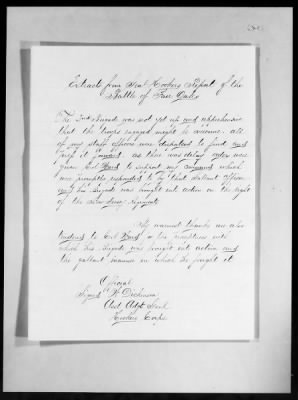 Extracts from Genl Hookers Report of the
Battle of Fair Oaks
The 2nd Brigade was not yet up and apprehensive
that the troops engaged might be overcome all
of my staff officers were dispatched to find and
press it forward as there was delay orders were
given Col Ward to support my command which
was promptly responded to by that gallant officer
and his Brigade was brought into action on the right
of the
My warmest thanks are also
tendered to Col Ward for the promptness with
which his Brigade was brought into action and
the gallant manner in which he fought it
Official
Signed Dickinson
Asst Adjt Genl
Hookers Corps